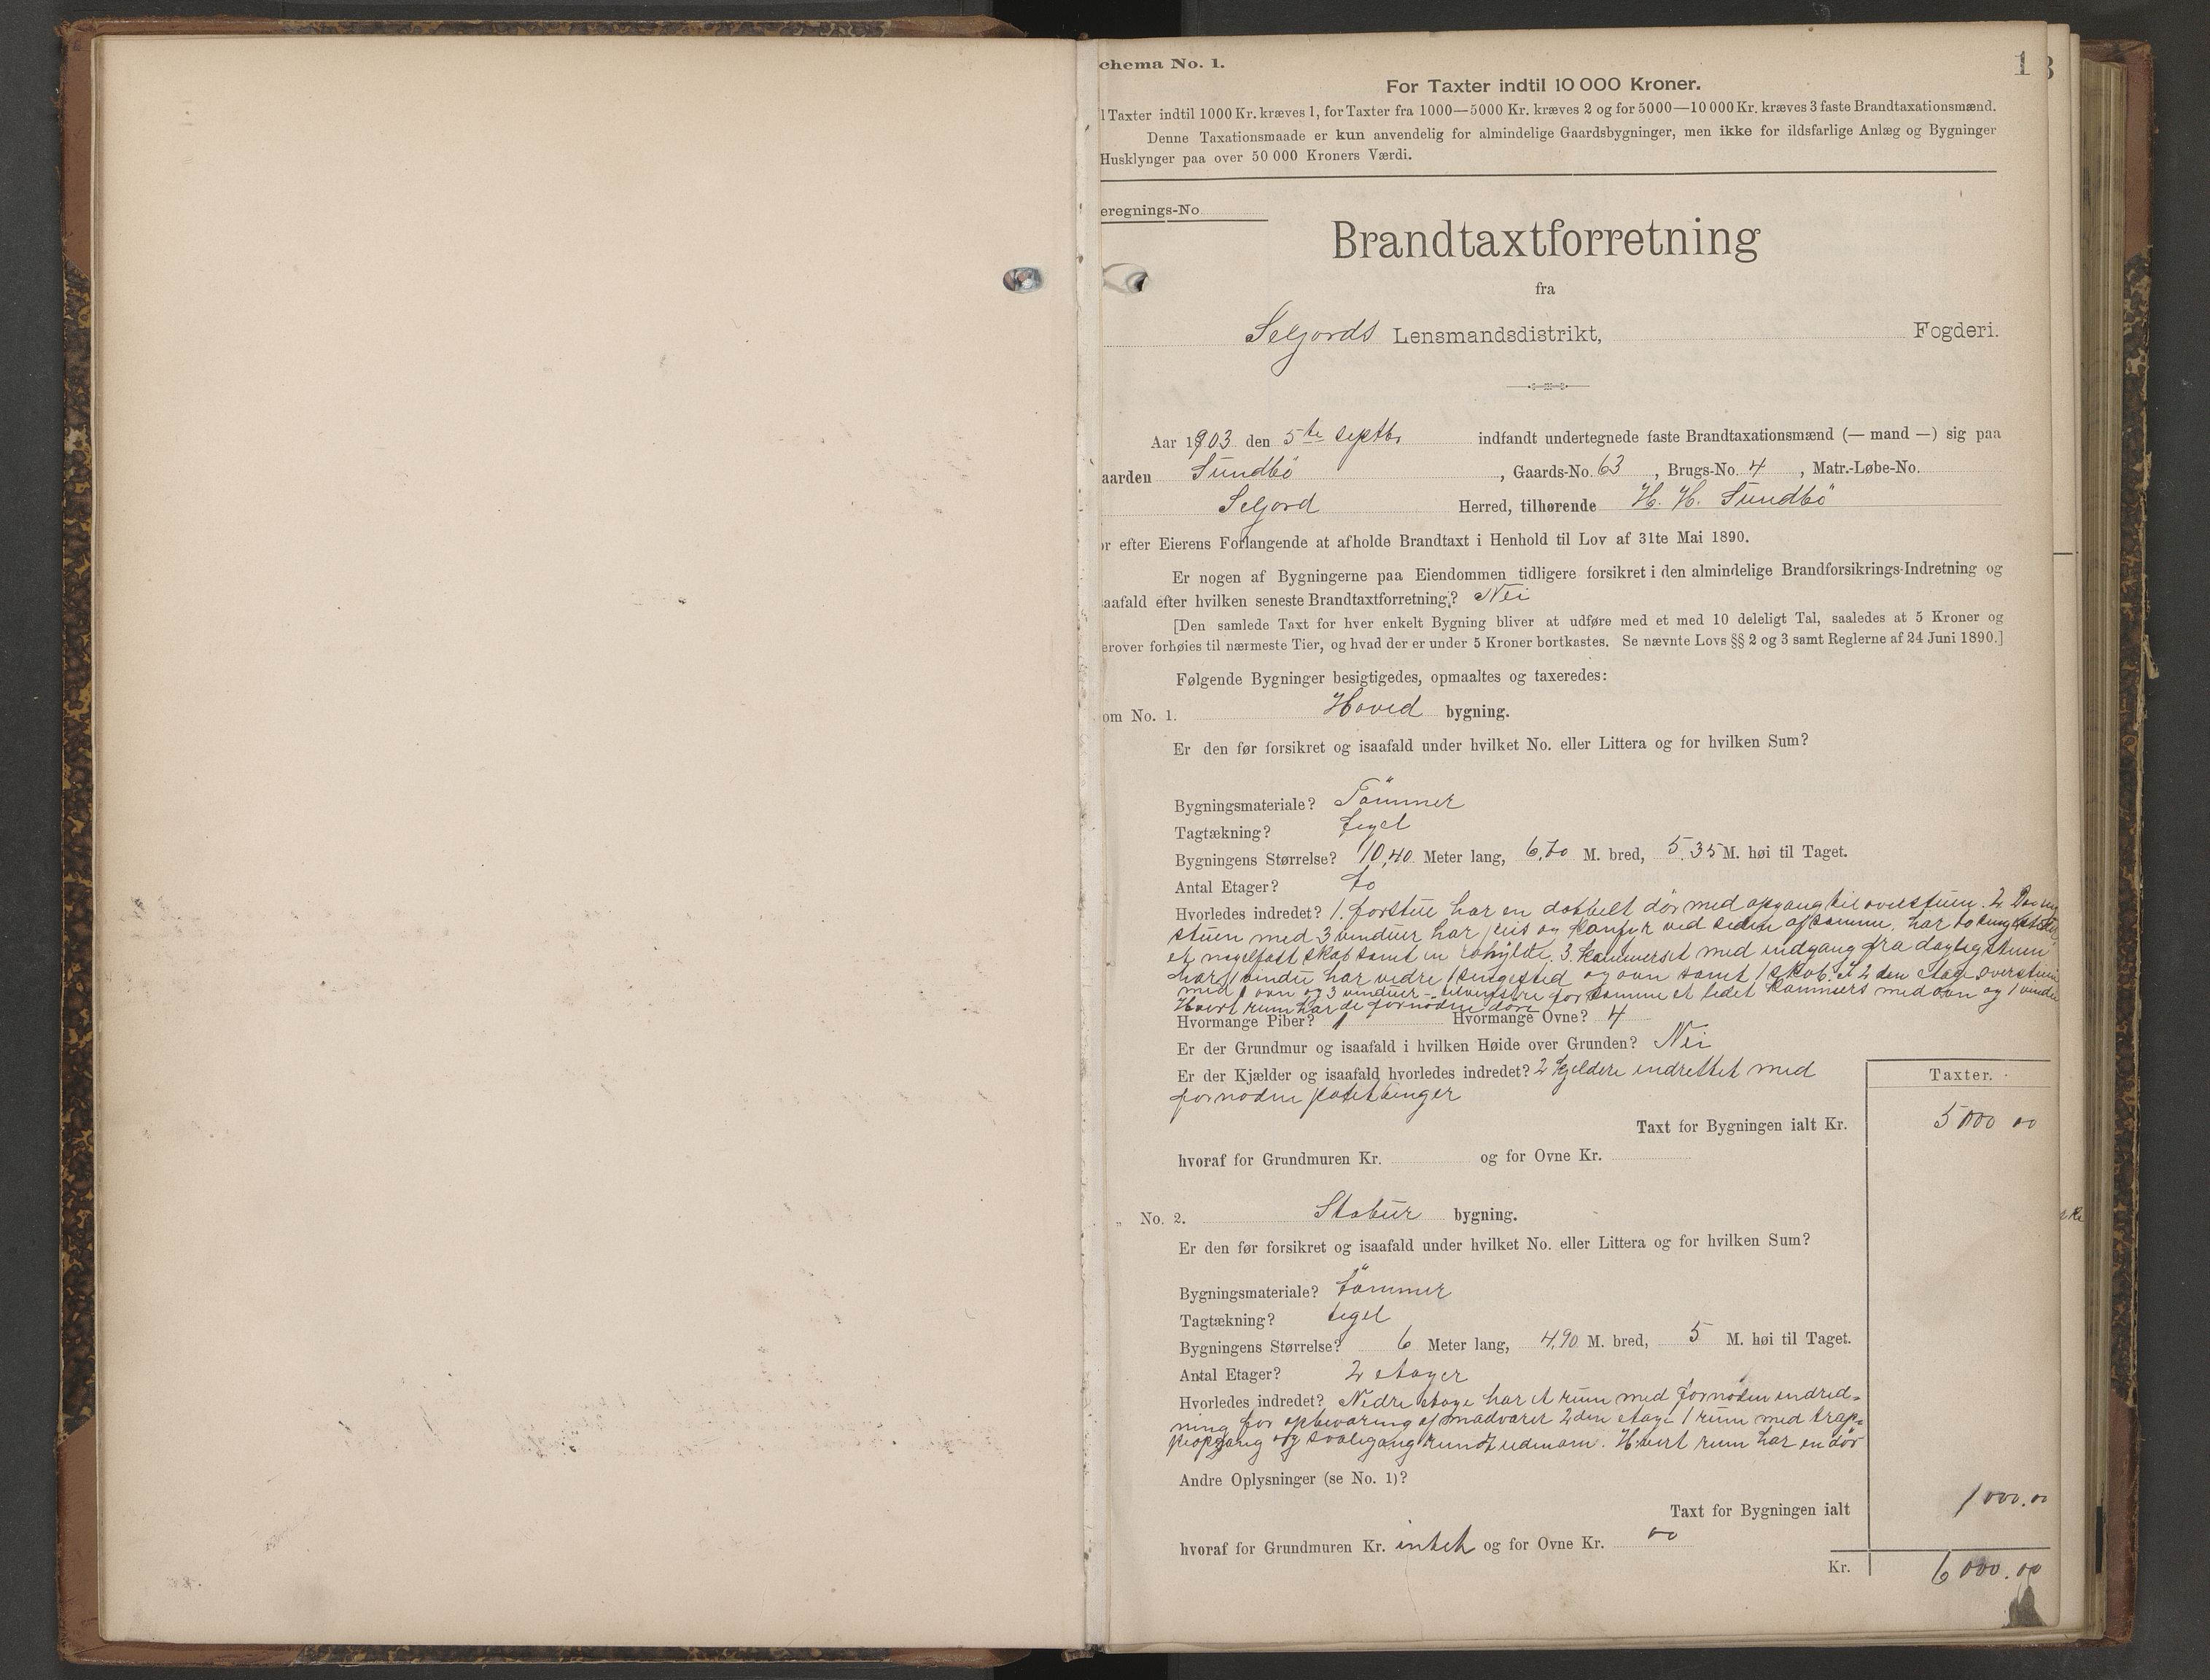 chema No. 1.
1
3
For Taxter indtil 10 000 Kroner.
l Taxter indtil 1000 Kr. kræves 1, for Taxter fra 1000—5000 Kr. kræves 2 og for 5000—10 000 Kr. kræves 3 faste Brandtaxationsmænd.
Denne Taxationsmaade er kun anvendelig for almindelige Gaardsbygninger, men ikke for ildsfarlige Anlæg og Bygninger
Husklynger paa over 50 000 Kroners Værdi.
eregnings-No
Brandtaxtforretning
fra
Seljords Lensmandsdistrikt, Fogderi.
Aar 1903 den 5te septbr indfandt undertegnede faste Brandtaxationsmænd (— mand —) sig paa
aarden Sundbö, Gaards-No. 63, Brugs-No. 4, Matr.-Løbe-No.
Seljord Herred, tilhørende H. H. Sundbö
or efter Eierens Forlangende at afholde Brandtaxt i Henhold til Lov af 31te Mai 1890.
Er nogen af Bygningerne paa Eiendommen tidligere forsikret i den almindelige Brandforsikrings-Indretning og
aafald efter hvilken seneste Brandtaxtforretning? Nei
[Den samlede Taxt for hver enkelt Bygning bliver at udføre med et med 10 deleligt Tal, saaledes at 5 Kroner og
erover forhøies til nærmeste Tier, og hvad der er under 5 Kroner bortkastes. Se nævnte Lovs §§ 2 og 3 samt Reglerne af 24 Juni 1890.]
Følgende Bygninger besigtigedes, opmaaltes og taxeredes:
om No. 1. Hoved bygning.
Er den før forsikret og isaafald under hvilket No. eller Littera og for hvilken Sum?
Bygningsmateriale? Tömmer
Tagtækning? tegel
Bygningens Størrelse? 10,40 Meter lang, 6,70 M. bred, 5,35 M. høi til Taget.
Antal Etager? to
Hvorledes indredet? 1. forstue har en dobbelt dör med opgang til overstuen. 2 Dagling
stuen med 3 vinduer har peis og konfyr ved siden af samme, har to
et nagelfast skab samt en 3. kammerset med indgang fra daglig stuen
har 1 vindu har vedre 1 sengested og ovn samt 1 skab. I 2 den etage overstuen
med 1 ovn og 3 vinduer - for samme et lidet kammers med ovn og 1 vindu
Hvert rum har de fornødne döre
Hvormange Piber? 1 Hvormange Ovne? 4
Er der Grundmur og isaafald i hvilken Høide over Grunden? Nei
Er der Kjælder og isaafald hvorledes indredet? 2 kjeldere indrettet med
fornødne potetbinger
Taxter.
Taxt for Bygningen ialt Kr. 5000 00
hvoraf for Grundmuren Kr. og for Ovne Kr.
„ No. 2. Stabur bygning.
Er den før forsikret og isaafald under hvilket No. eller Littera og for hvilken Sum?
Bygningsmateriale? tömmer
Tagtækning? tegel
Bygningens Størrelse? 6 Meter lang, 4,90 M. bred, 5 M. høi til Taget.
Antal Etager? 2 etager
Hvorledes indredet? Nedre etage har et rum med fornøden indred-
ning for opbevaring af madvarer 2 den etage 1 rum med trap-
peopgang og svalegang rundt udenom. Hvert rum har en dör
Andre Oplysninger (se No. 1)?
Taxt for Bygningen ialt 1000.00
hvoraf for Grundmuren Kr. intet og for Ovne Kr. 00
Kr. 6000.00